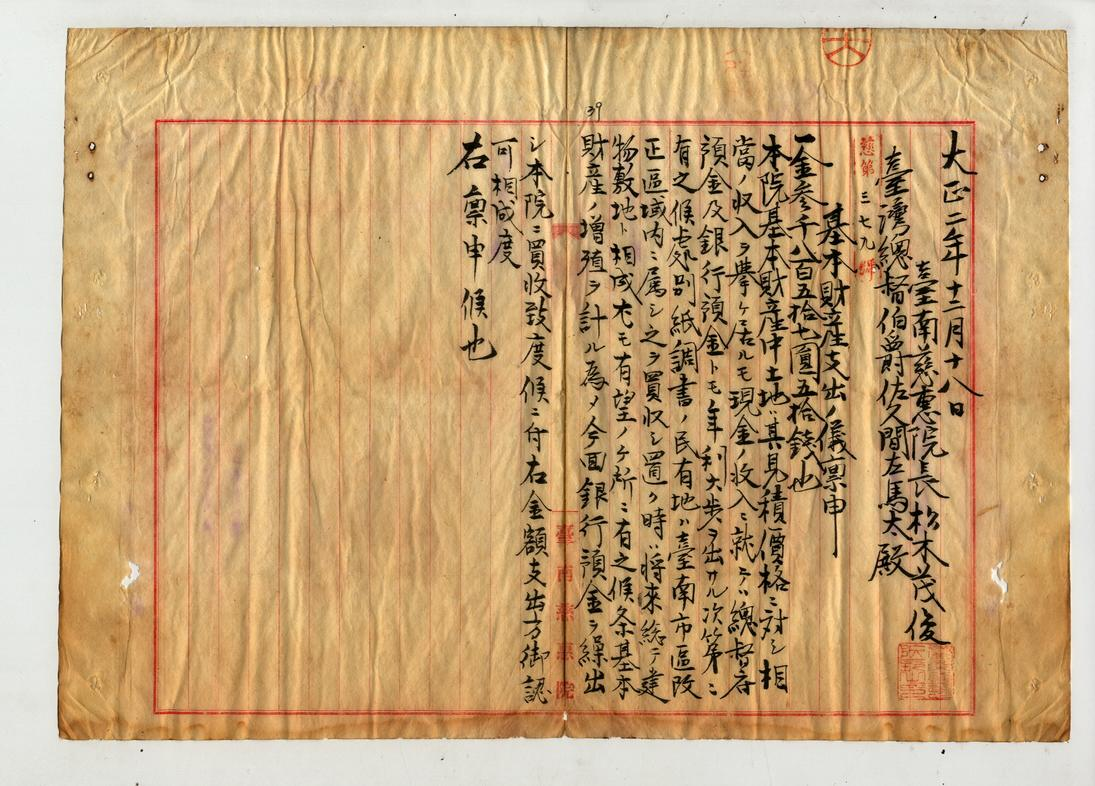 大正二年十二月十八日
臺南慈惠院長松木茂俊
臺灣總督伯爵佐久間左馬太殿
慈第三七九號
基本財産支出ノ儀稟申
一金參千八百五拾七圓五拾錢也
本院基本財産中土地ハ其見積價格ニ対シ相
當ノ収入ヲ擧ケ居ルモ現金ノ收入ニ就テハ總督府
預金及銀行預金トモ年利六歩ヲ出サル次第ニ
有之候處別紙調書ノ民有地ハ臺南市區改
正區域内ニ属シ之ヲ買収シ置ク時ハ将来總テ建
物敷地ト相成尤モ有望ノケ所ニ有之候条基本
財産ノ増殖ヲ計ル為メ今回銀行預金ヲ繰出
シ本院ニ買收致度候ニ付右金額支出方御認
可相成度
右稟申候也
39
臺南慈惠院